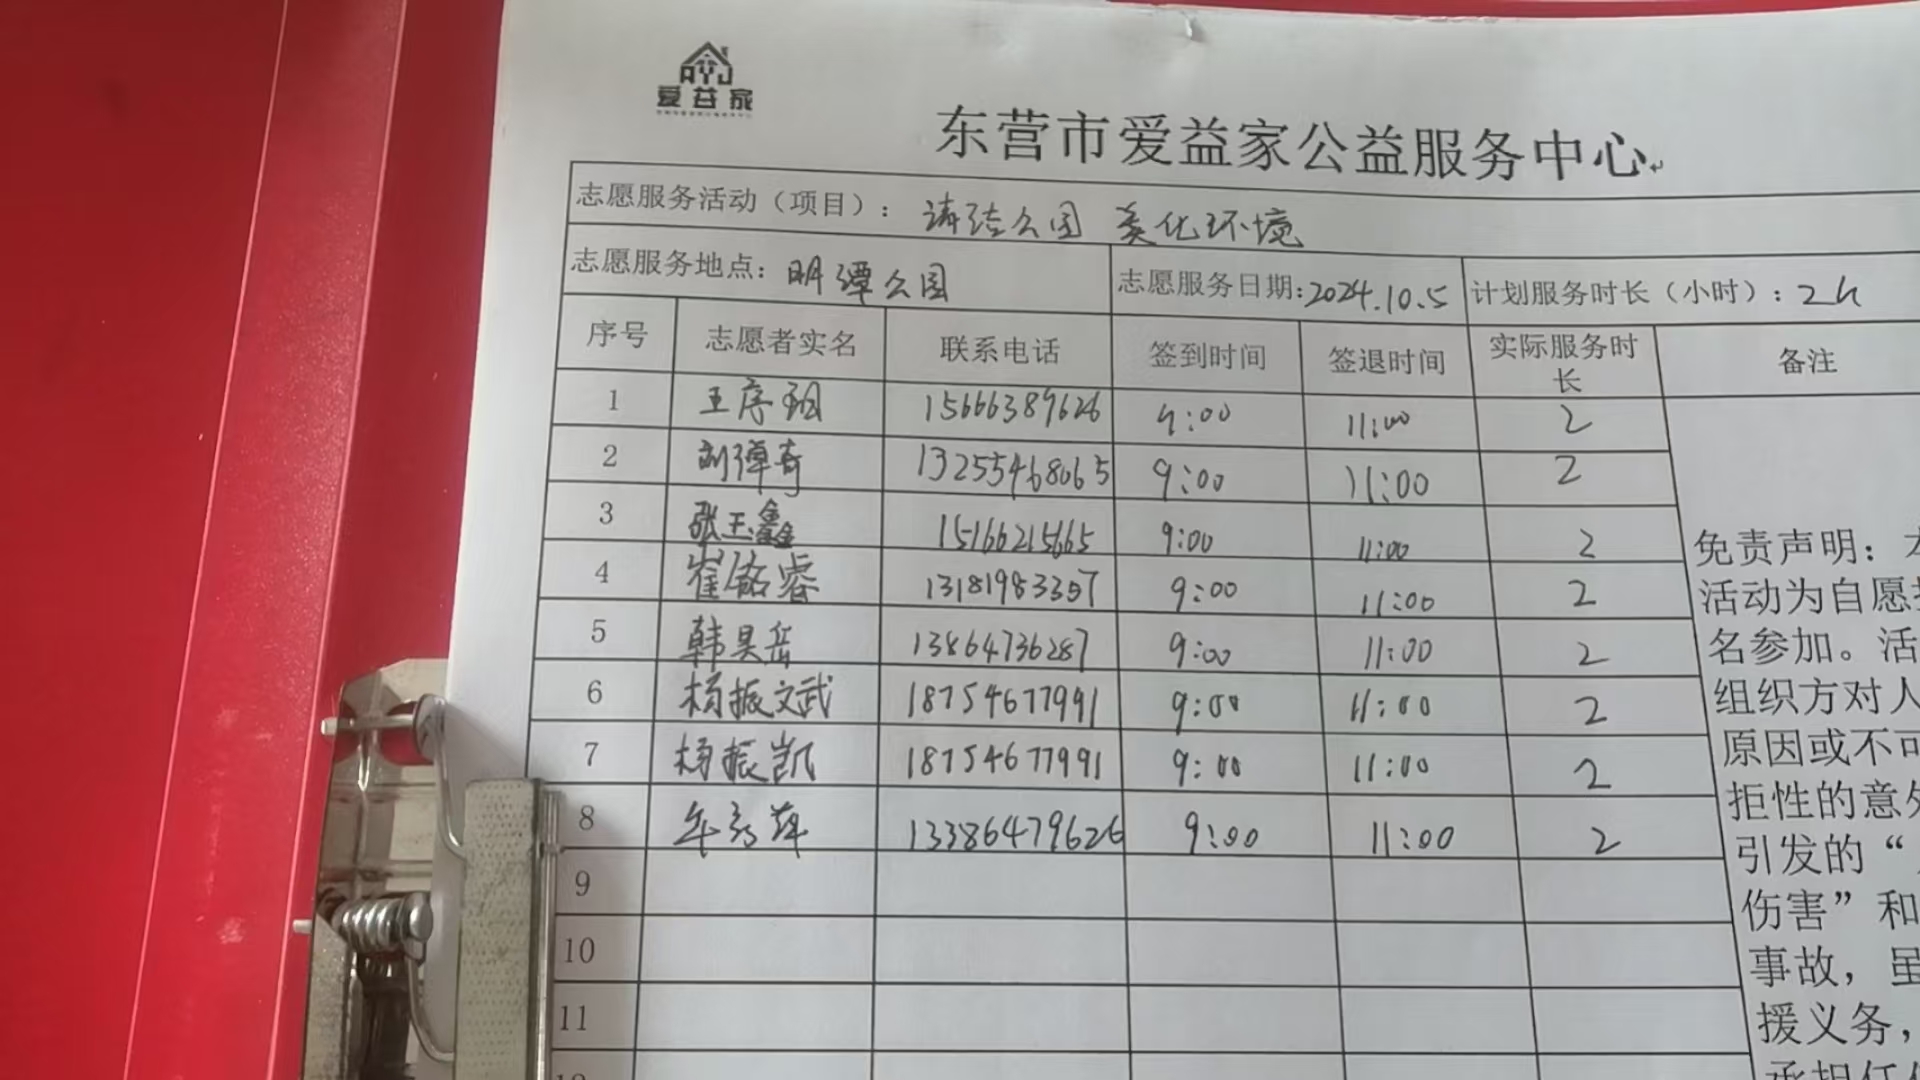 爱益家
东营市爱益家公益服务中心
志愿服务活动（项目）： 清洁公园 美化环境
志愿服务地点：明潭公园 志愿服务日期：2024.10.5 计划服务时长（小时）：2h
序号 志愿者实名 联系电话 签到时间 签退时间 实际服务时长 备注
1 王序 15666389626 9:00 11:00 2
2 刘 13255468065 9:00 11:00 2
3 张玉鑫 15166215665 9:00 11:00 2
4 崔铭睿 13181983357 9:00 11:00 2
5 韩昊岳 13864736287 9:00 11:00 2
6 杨振文武 18754677991 9:00 11:00 2
7 杨振凯 18754677991 9:00 11:00 2
8 萍 13386479626 9:00 11:00 2
9
10
11
免责声明：本
活动为自愿
名参加。活
组织方对人
原因或不可
拒性的意外
引发的“
伤害”和
事故，虽
援义务，
承担任